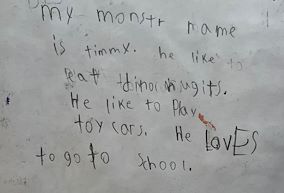 my monstr name
is timmy. he like to
eat
He like to Play
toy cars. He LOVES
to go to School.